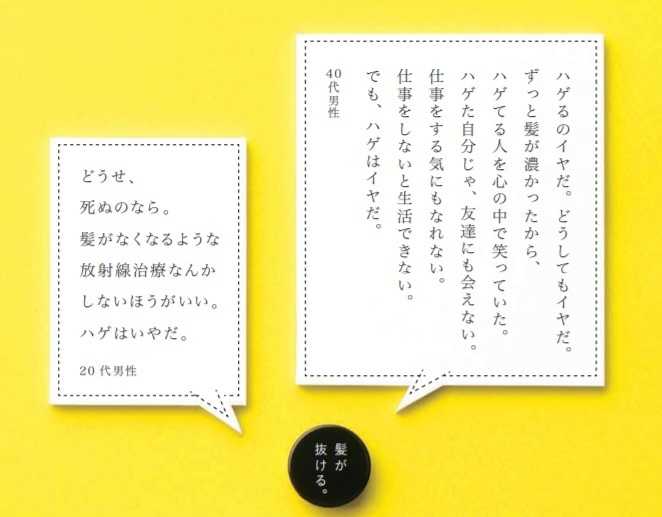 ハゲるのイヤだ。どうしてもイヤだ。
ずっと髪が濃かったから、
ハゲてる人を心の中で笑っていた。
ハゲた自分じゃ、友達にも会えない。
仕事をする気にもなれない。
仕事をしないと生活できない。
でも、ハゲはイヤだ。
40代男性
どうせ、
死ぬのなら。
髪がなくなるような
放射線治療なんか
しないほうがいい。
ハゲはいやだ。
20代男性
髪が
抜ける。